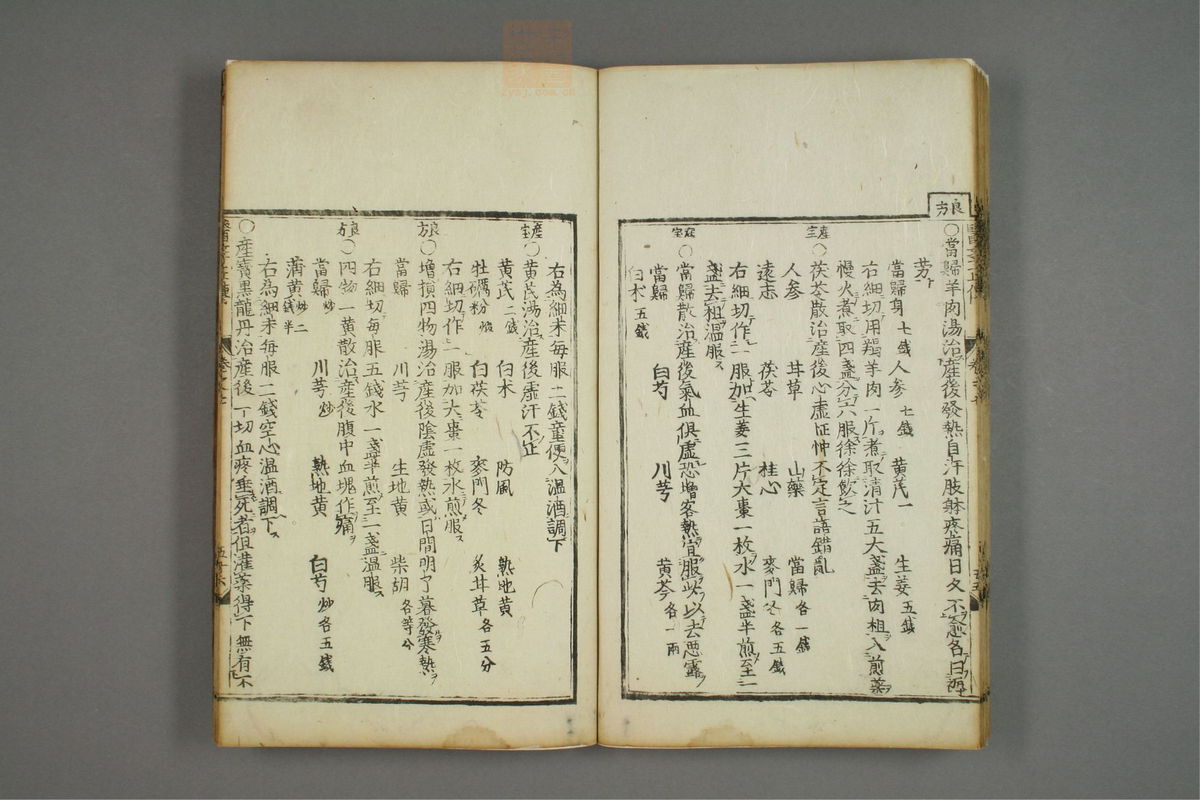 良方
○當歸羊肉湯治産後發熱自汗肢躰疼痛日久不愈名曰
芳
當歸身七錢 人参七錢 黄芪一 生姜五錢
右細切用羯羊肉一斤煮取清汁五大盞去肉柤入煎藥
慢火煮取四盞分六服徐徐飲之
産宝
○茯苓散治産後心虚怔忡不定言語錯亂
人参 甘草 山藥 當歸各一錢
遠志 茯苓 桂心 麥門冬各五錢
右細切作二服加生姜三片大棗一枚水一盞半煎至一
盞去柤温服
産宝
○當歸散治産後氣血俱虚恐增客熱宜服此以去悪露
當歸 白芍 川芎 黄芩各一兩
白术五錢
右為細末毎服二錢童便入温酒調下
産宝
○黄芪湯治産後虚汗不止
黄芪二錢 白术 防風 熟地黄
牡礪粉煅 白茯苓 麥門冬 炙甘草各五分
右細切作一服加大棗一枚水煎服
良方
○增損四物湯治産後陰虚發熱或日間明了暮發寒熱
當歸 川芎 生地黄 柴胡各等分
右細切毎服五錢水一盞半煎至一盞温服
良方
○四物一黄散治産後腹中血塊作痛
當歸炒 川芎炒 熟地黄 白芍炒各五錢
蒲黄炒二錢半
右為細末毎服二錢空心温酒調下
○産寶黒龍丹治産後一切血疼垂死者但灌藥得下無有不
zysj.com.cn